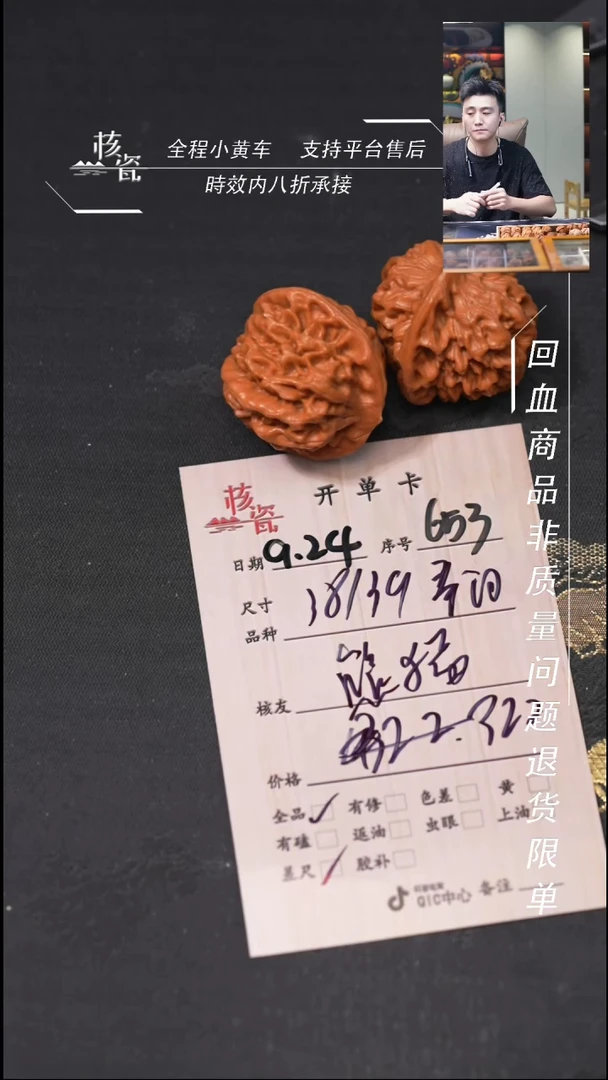 核瓷
全程小黄车 支持平台售后
時效内八折承接
回血商品非质量问题退货限单
核瓷
开单卡
日期 9.24 序号 653
尺寸 38/39
品种
熊猫
核友
价格
全品 有修 色差 黄
有磕 返油 虫眼 上油
差尺 胶补
QIC中心 备注